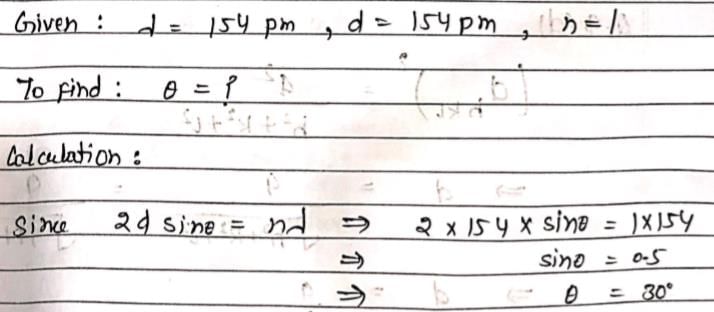 Given : λ = 154 pm , d = 154 pm , n = 1
To find : θ = ?
Calculation :
Since 2d sinθ = nλ ⇒ 2 × 154 × sinθ = 1×154
⇒ sinθ = 0.5
⇒ θ = 30°